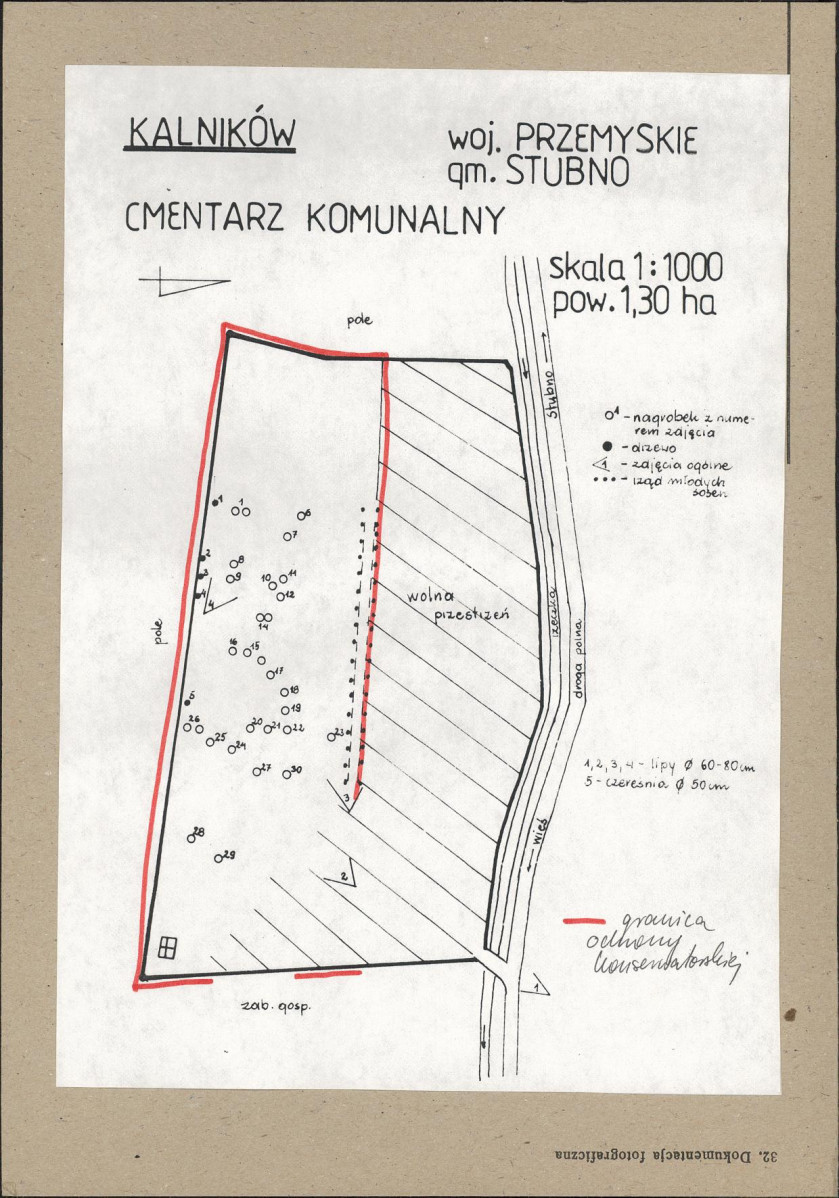 KALNIKÓW
woj. PRZEMYSKIE
gm. STUBNO
CMENTARZ KOMUNALNY
skala 1:1000
pow. 1,30 ha
pole
Stubno
1 - nagrobek z nume-
rem zdjęcia
- drzewo
1 - zdjęcia ogólne
- rząd młodych
sosen
1
1
6
2
7
3
8
4
9
10
11
12
4
14
wolna
przestrzeń
rzeczka
droga polna
pole
16
15
17
18
5
19
26
20
21
22
23
25
24
27
30
1, 2, 3, 4 - lipy ϕ 60-80cm
5 - czereśnia ϕ 50cm
3
28
29
wieś
2
granica
ochrony
konserwatorskiej
1
zab. gosp.
32. Dokumentacja fotograficzna